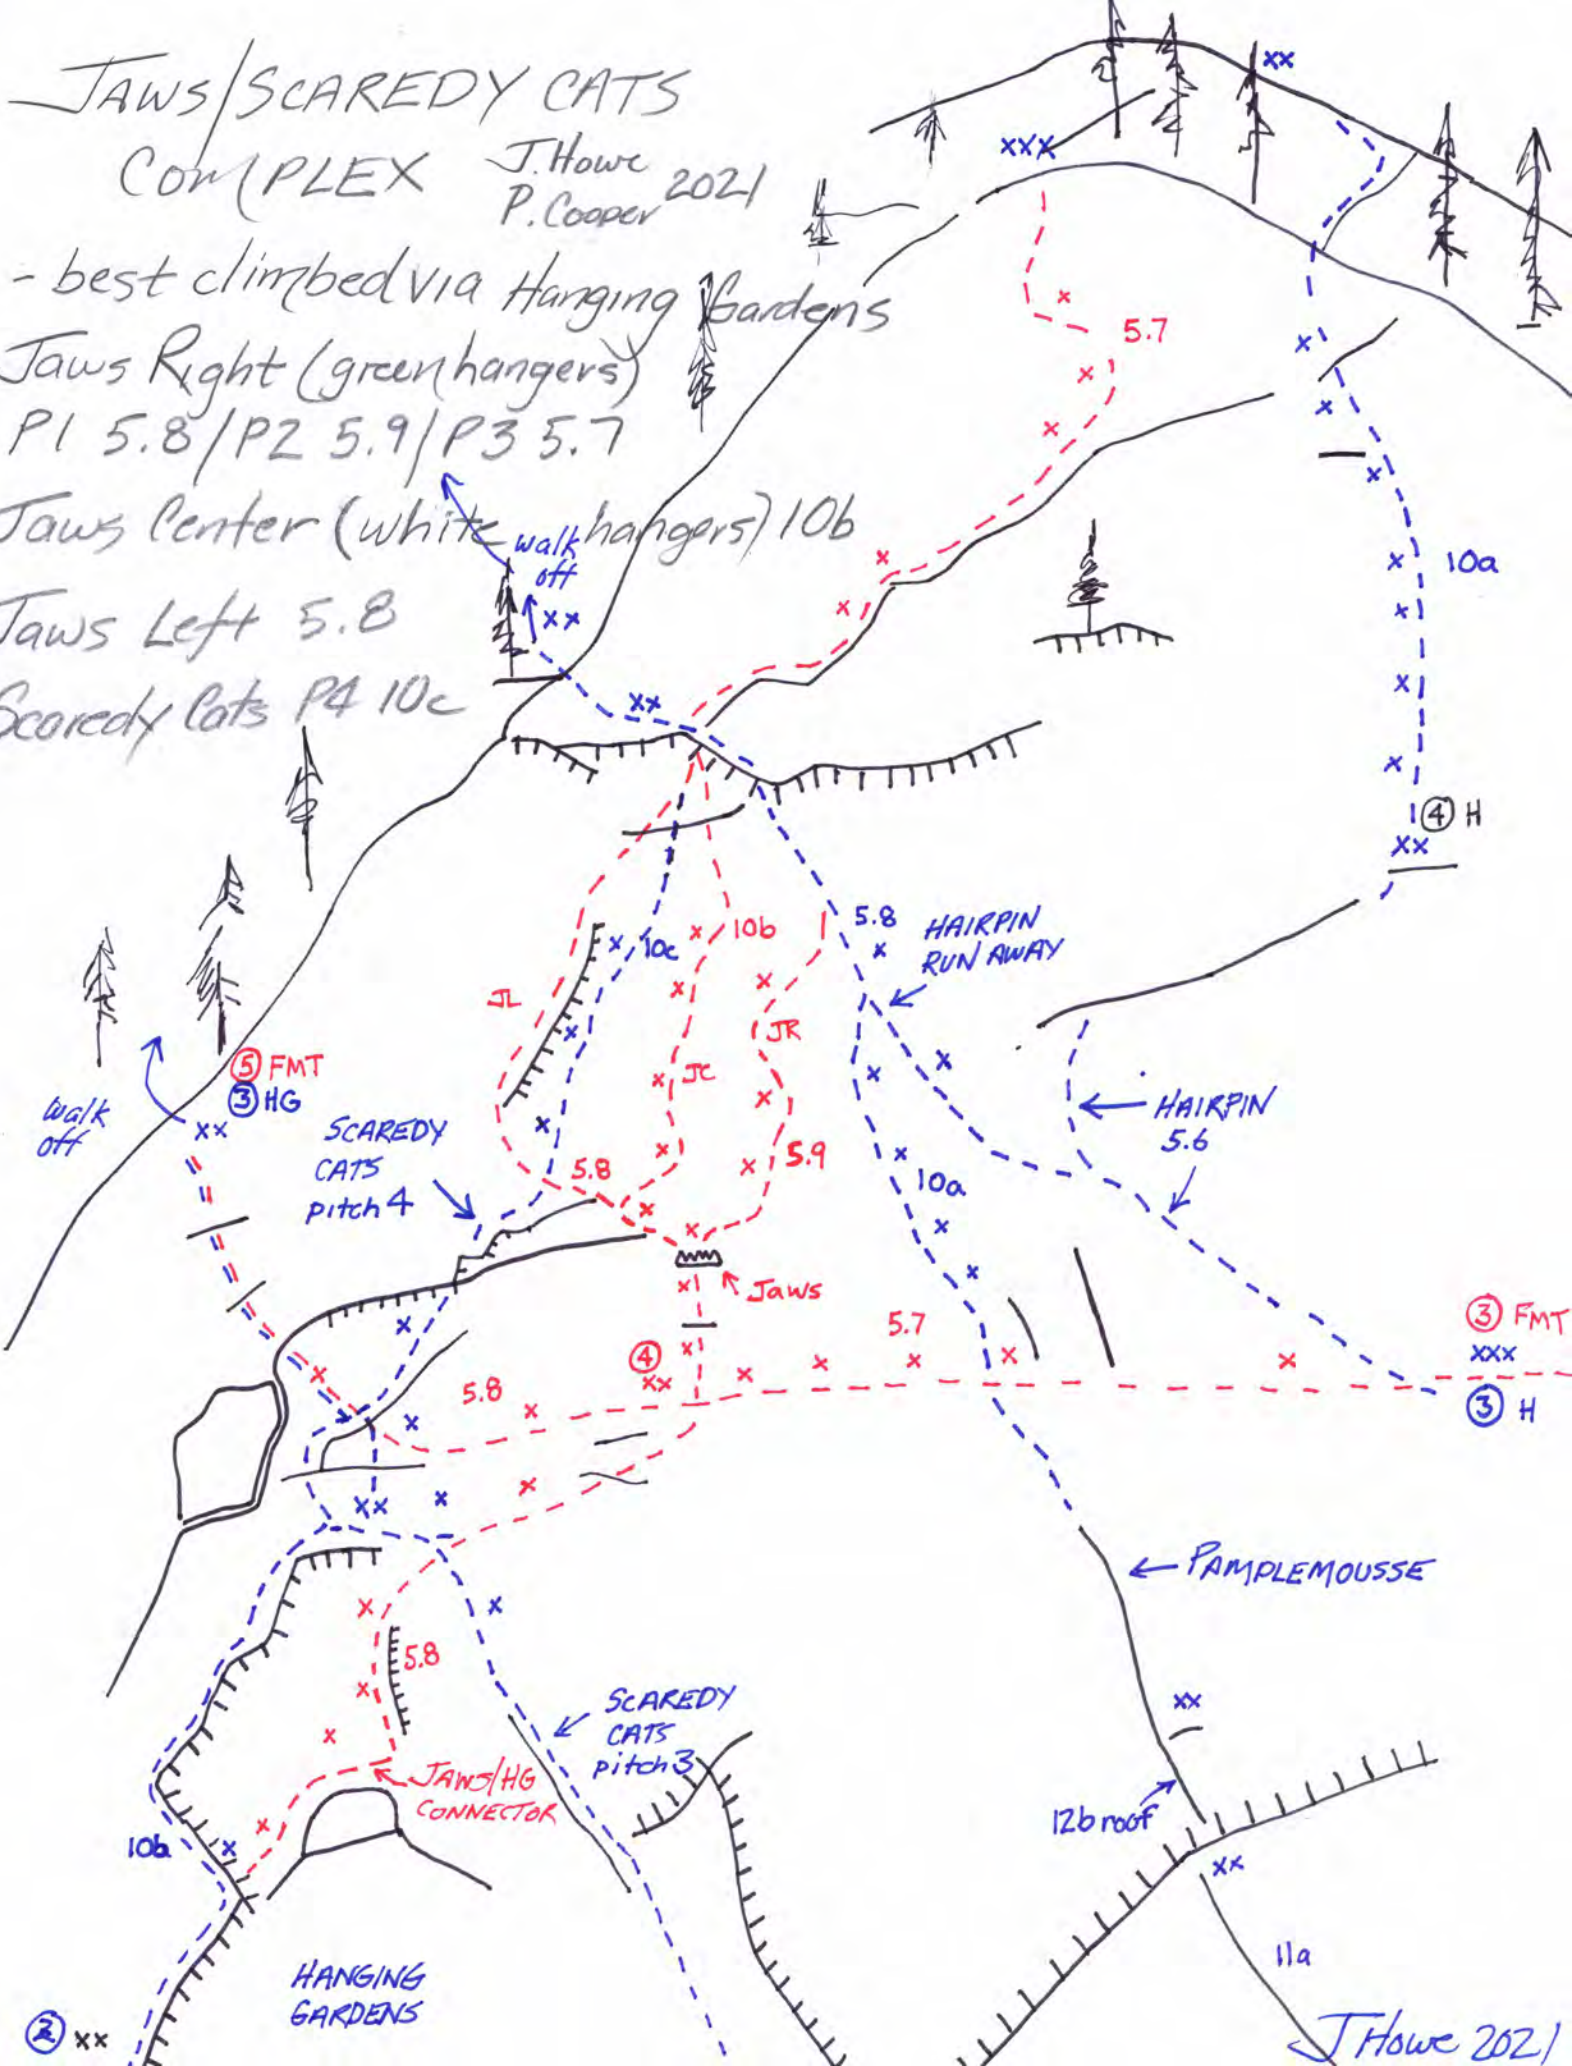 JAWS/SCAREDY CATS
COMPLEX J. Howe
P. Cooper 2021
- best climbed via Hanging Gardens
Jaws Right (green hangers)
P1 5.8/P2 5.9/P3 5.7
Jaws Center (white hangers) 10b
Jaws Left 5.8
Scaredy Cats P4 10c
xx
xxx
5.7
walk
off
xx
xx
10a
④ H
xx
5.8
HAIRPIN
RUN AWAY
10c
10b
JL
JR
JC
⑤ FMT
③ HG
walk
off
xx
SCAREDY
CATS
pitch 4
5.8
5.9
10a
HAIRPIN
5.6
Jaws
5.7
③ FMT
xxx
③ H
④
xx
5.8
xx
PAMPLEMOUSSE
5.8
SCAREDY
CATS
pitch 3
xx
JAWS/HG
CONNECTOR
12b roof
10b
xx
11a
HANGING
GARDENS
② xx
J Howe 2021